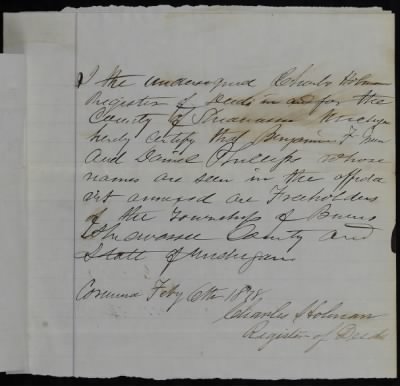 I the undersigned Charles Holman
Register of Deeds in and for the
County of Shiawassee Michigan
hereby certify that Benjamin F
And Daniel Phillips whose
names are seen in the affida
vit annexed are Freeholders
of the Township of Burns
Shiawassee County and
State of Michigan
Corunna Feby 6th
Charles Holman
Register of Deeds